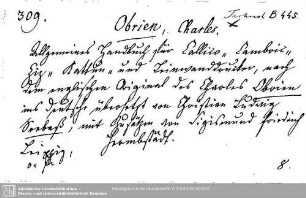 309.
Obrien, Charles.
Technol B 445.
Allgemeines Handbuch für Callico- Cambric-
Ziz- Kattun- und Leinwanddrucker, nach
dem englischen Original des Charles Obrien
ins deutsche übersetzt von Christian Ludwig
Seebaß, mit Zusätzen von Sigismund Friedrich
Hermbstädt.
Leipzig,
o. J.
8.
Sächsische Landesbibliothek -
Staats- und Universitätsbibliothek Dresden